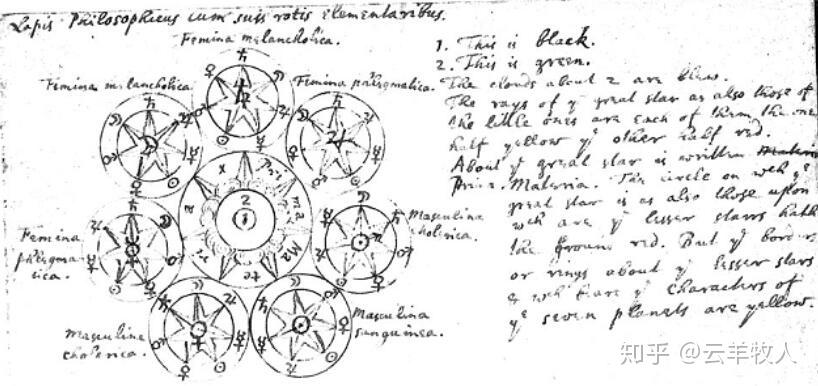 Lapis Philosophicus cum suis rotis elementaribus.
Femina melancholica.
Femina melancholica.
Femina phlegmatica.
Femina
phlegma
tica.
Masculina
cholerica.
Masculina
cholerica.
Masculina
sanguinea.
Pri
ma
Ma
te
ri
a
2
1
1. This is black.
2. This is green.
The clouds about 2 are blew.
The rays of yᵉ great star as also those of
the little ones are each of them the one
half yellow yᵉ other half red.
About yᵉ great star is written Materia
Prima Materia. The circle on wch yᵉ
great star is as also those upon
wch are yᵉ lesser starrs hath
the ground red. But yᵉ borders
or rings about yᵉ lesser stars
& wch beare yᵉ characters of
yᵉ seven planets are yellow.
知乎 @云羊牧人